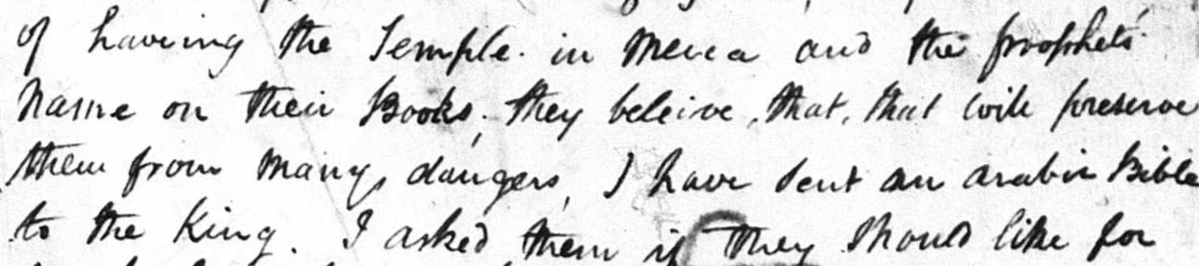 of having the Temple in Mecca and the prophets
Name on their Books, they beleive that, that will preserve
them from many dangers, I have sent an arabic Bible
to the King. I asked them if they should like for